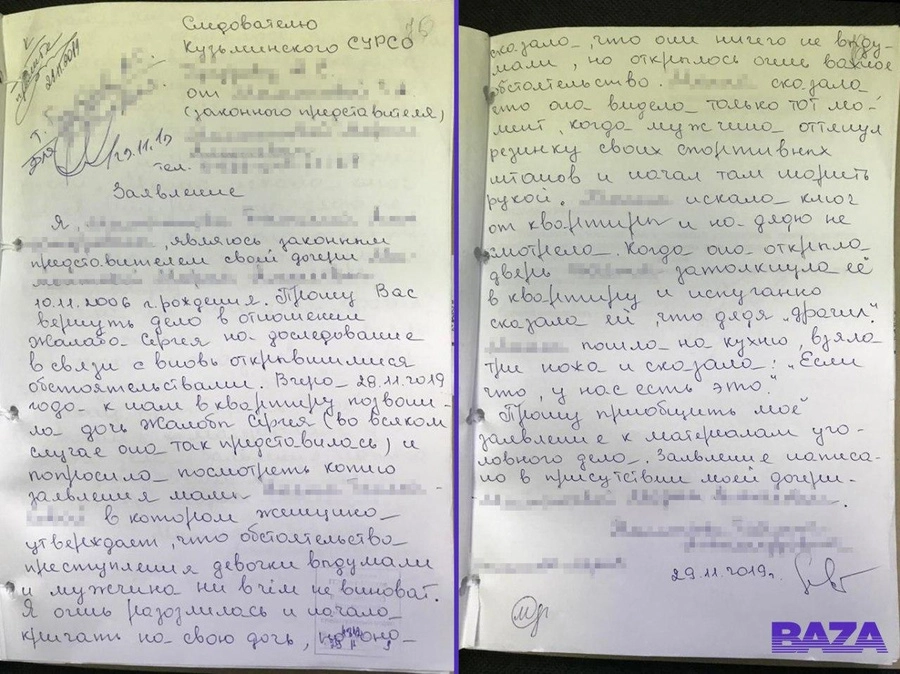 Следователю
Кузьминского СУРСО
от
(законного представителя)
тел.
29.11.19
Заявление
Я,
, являюсь законным
представителем своей дочери
10.11.2006 г. рождения. Прошу Вас
вернуть дело в отношении
Жалаба Сергея на доследование
в связи с вновь открывшимися
обстоятельствами. Вчера 28.11.2019
года к нам в квартиру позвони-
ла дочь Жалабы Сергея (во всяком
случае она так представилась) и
попросила посмотреть копию
заявления мамы
в котором женщина
утверждает, что обстоятельства
преступления девочки выдумали
и мужчина ни в чём не виноват.
Я очень разозлилась и начала
кричать на свою дочь,
сказала, что они ничего не выду-
мали, но открылось очень важное
обстоятельство. сказала
что она видела только тот мо-
мент, когда мужчина оттянул
резинку своих спортивных
штанов и начал там шарить
рукой. искала ключ
от квартиры и на дядю не
смотрела. Когда она открыла
дверь затолкнула её
в квартиру и испуганно
сказала ей, что дядя „дрочил".
пошла на кухню, взяла
три ножа и сказала: „Если
что, у нас есть это."
Прошу приобщить моё
заявление к материалам уго-
ловного дела. Заявление написа-
но в присутствии моей дочери
29.11.2019г.
BAZA